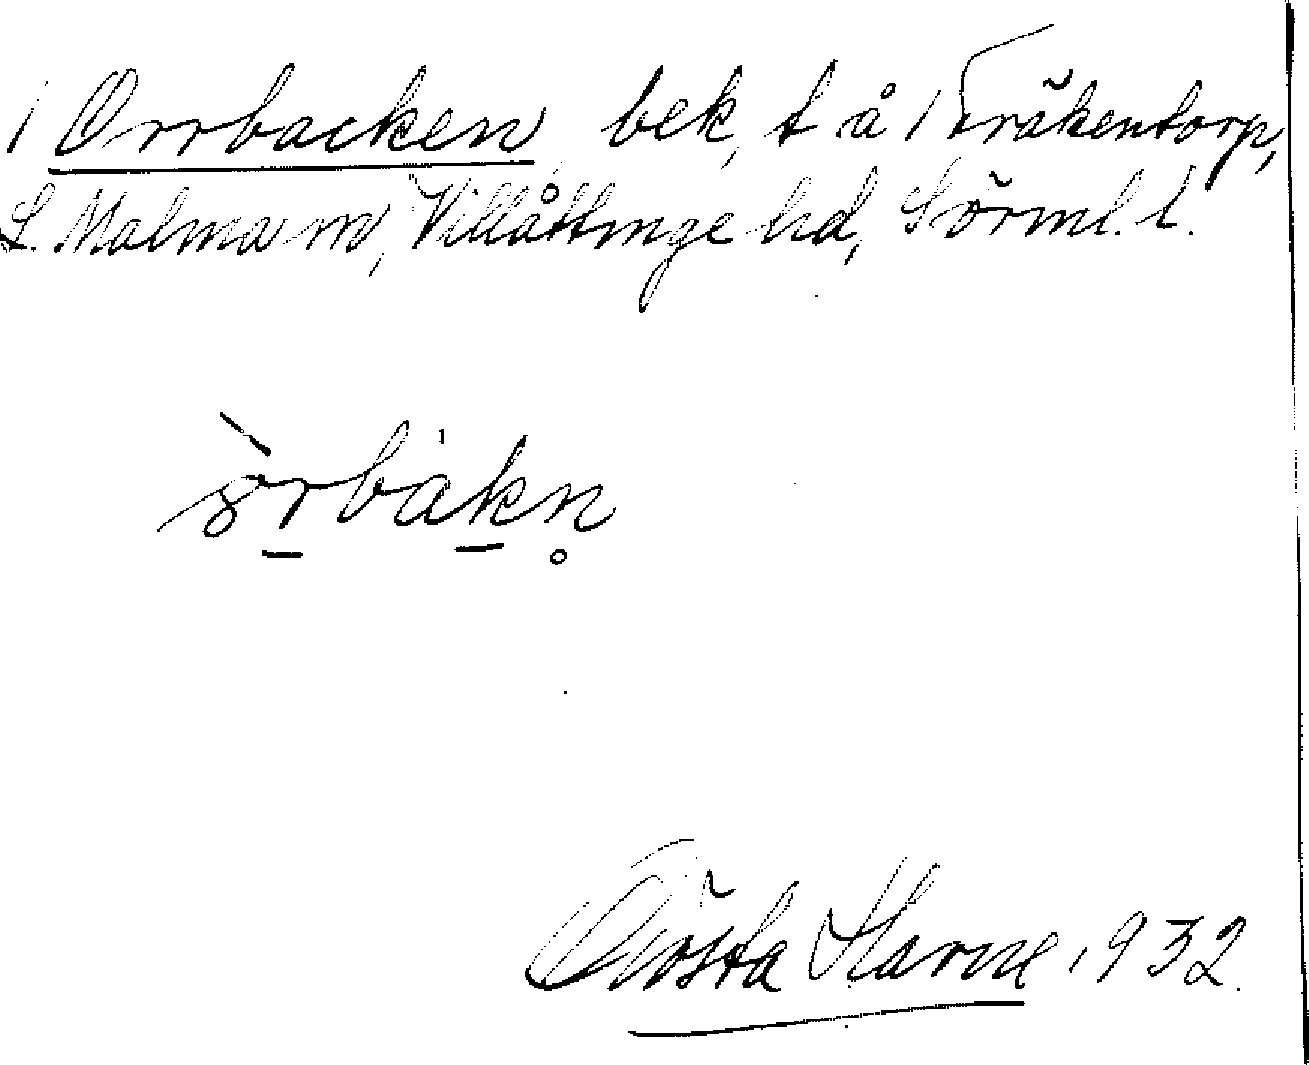 1 Orrbacken, bek, t å 1 Fräkentorp,
L. Malma sn, Villåttinge hd, Sörml. l.
òrbakn̥
Gösta 1932.